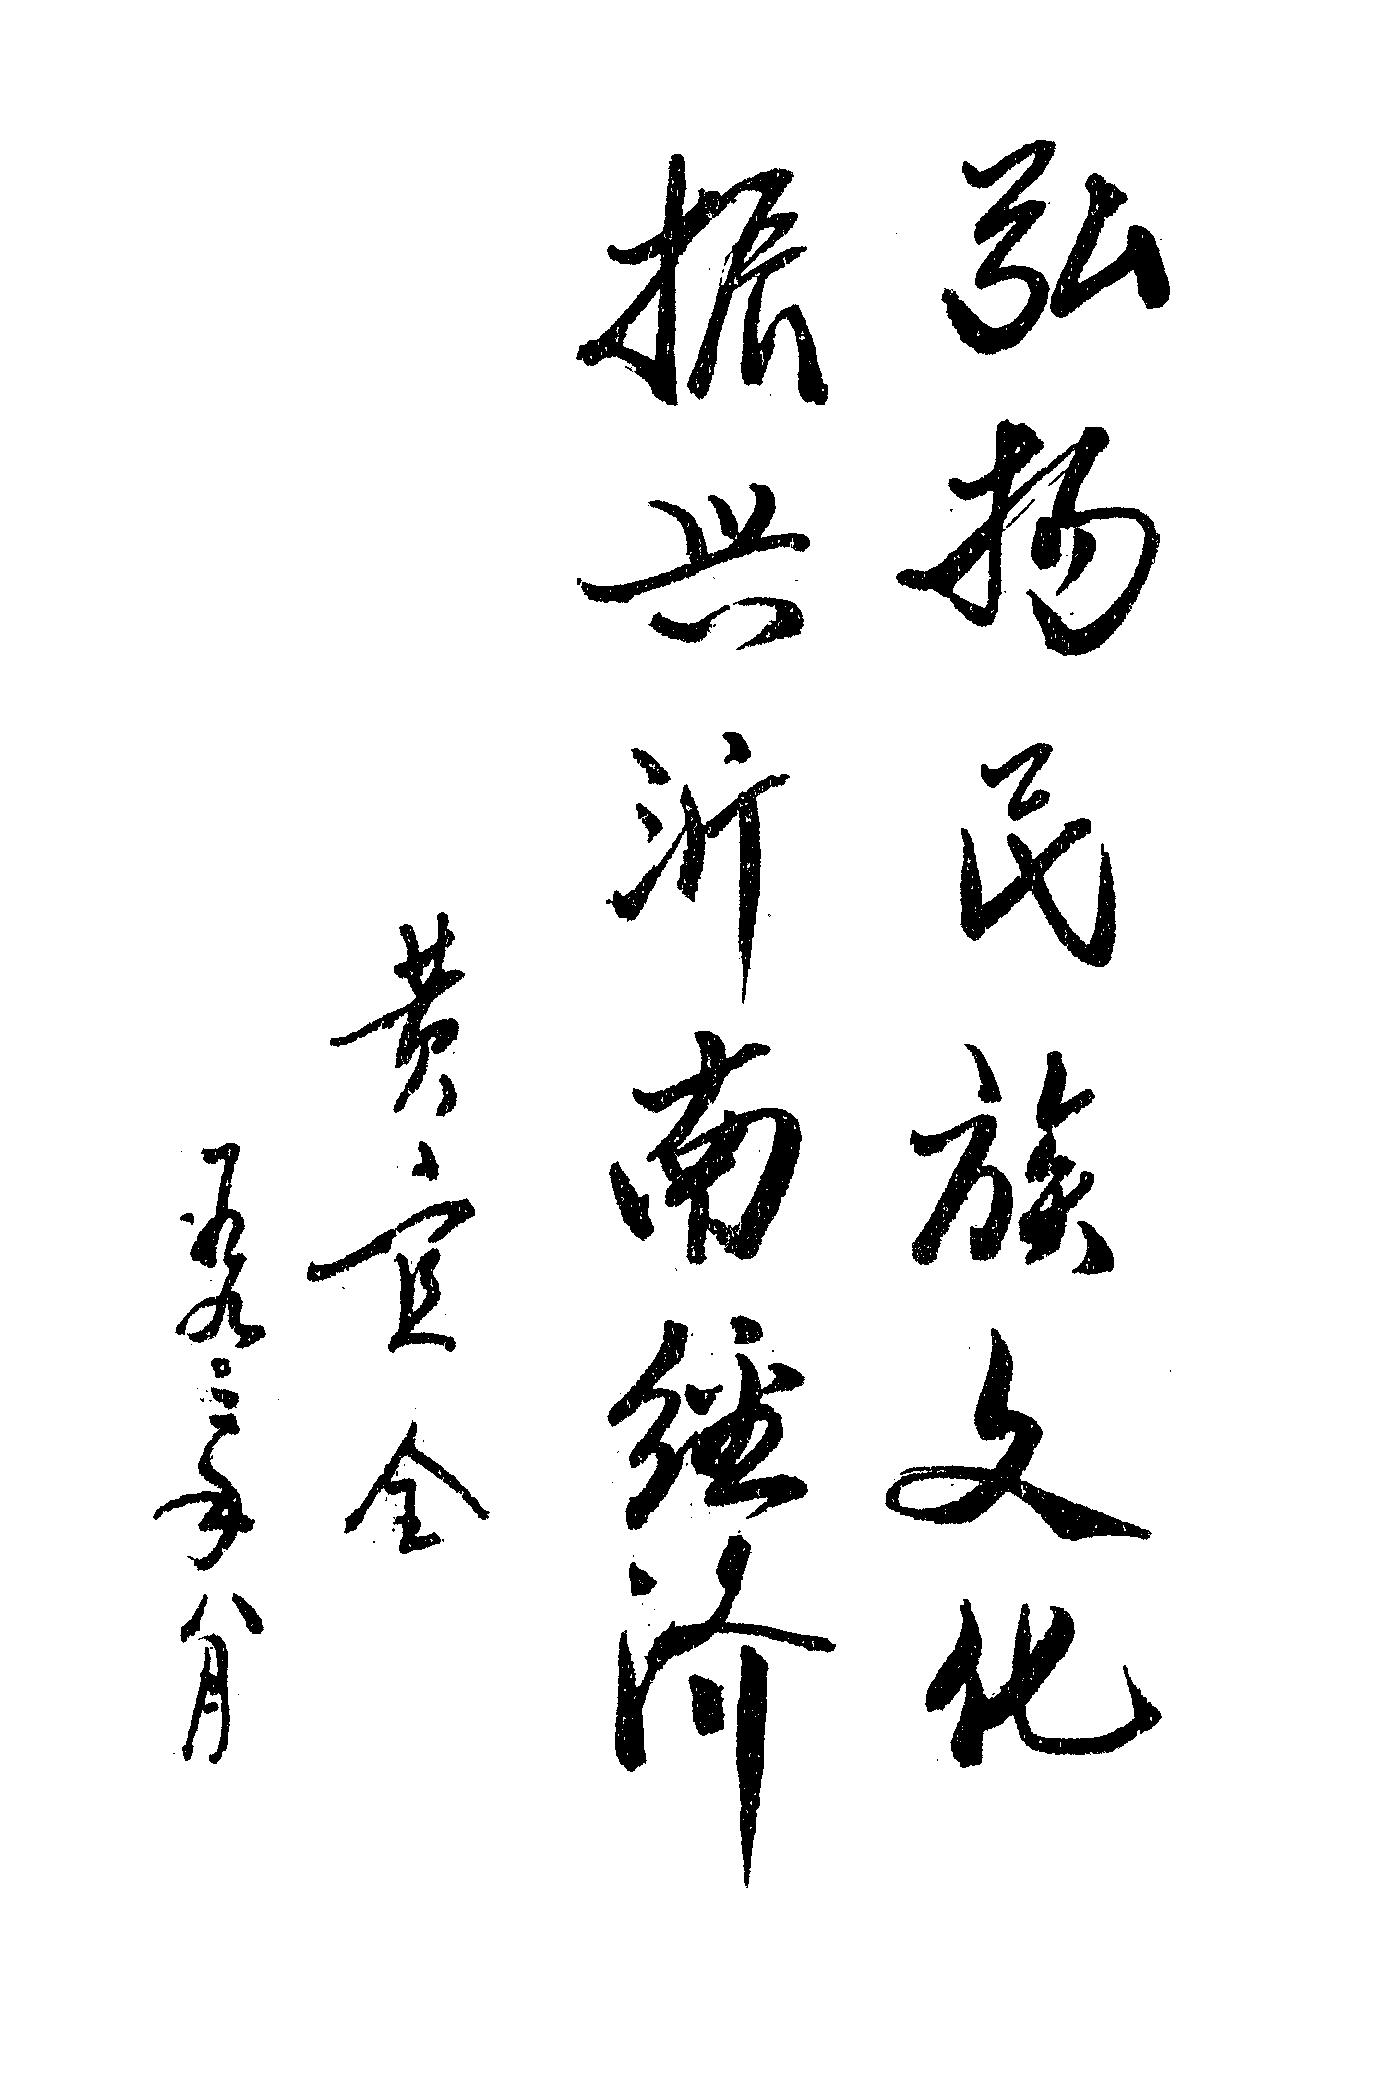 弘扬民族文化
振兴沂南经济
黄宜全
一九九三年八月